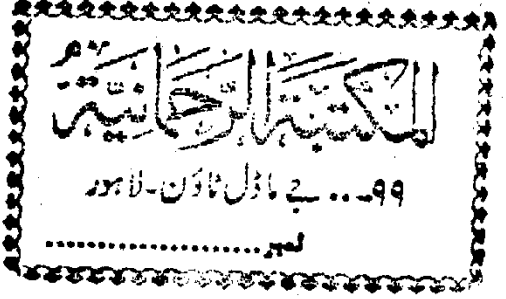 المکتبۃ الرحمانیۃ
۹۹... جے ماڈل ٹاؤن۔لاہور
نمبر....................